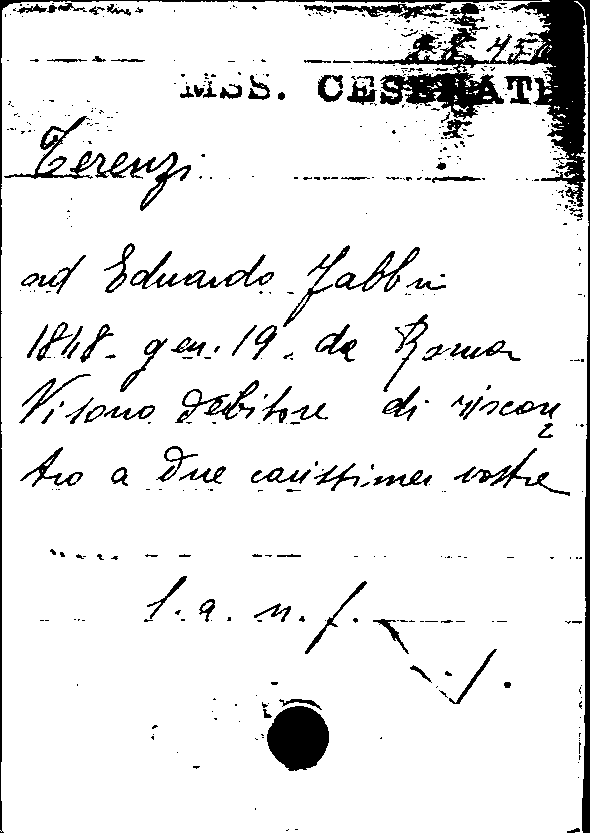 MSS. CESENATI
Terenzi
ad Eduardo Fabbri
1848. gen. 19. da Roma
Vi sono debitore di riscon
tro a due carissime vostre
l. a. n. f.